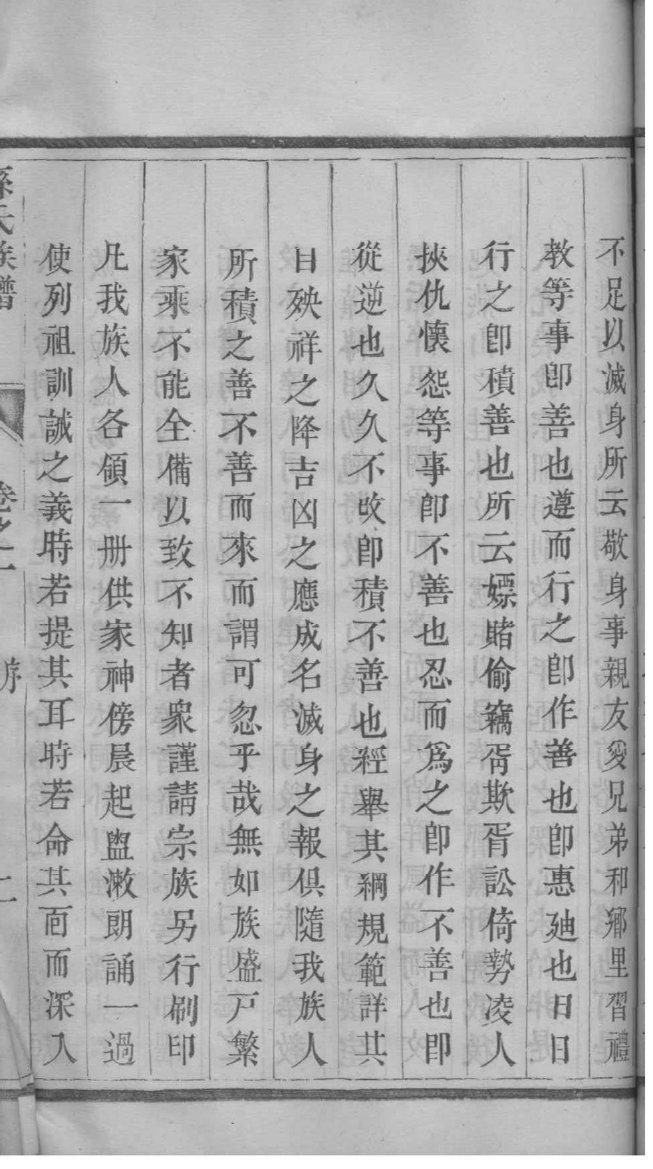 不足以滅身所云敬身事親友愛兄弟和鄉里習禮
教等事卽善也遵而行之卽作善也卽惠廸也日日
行之卽積善也所云嫖賭偷竊胥欺胥訟倚勢凌人
挾仇懷怨等事卽不善也忍而爲之卽作不善也卽
從逆也久久不改卽積不善也經舉其綱規範詳其
目殃祥之降吉凶之應成名滅身之報俱隨我族人
所積之善不善而來而謂可忽乎哉無如族盛戸繁
家乘不能全備以致不知者衆謹請宗族另行刷印
凡我族人各領一册供家神傍晨起盥漱朗誦一過
使列祖訓誠之義時若提其耳時若命其面而深入
孫氏族譜
卷之一
序
二